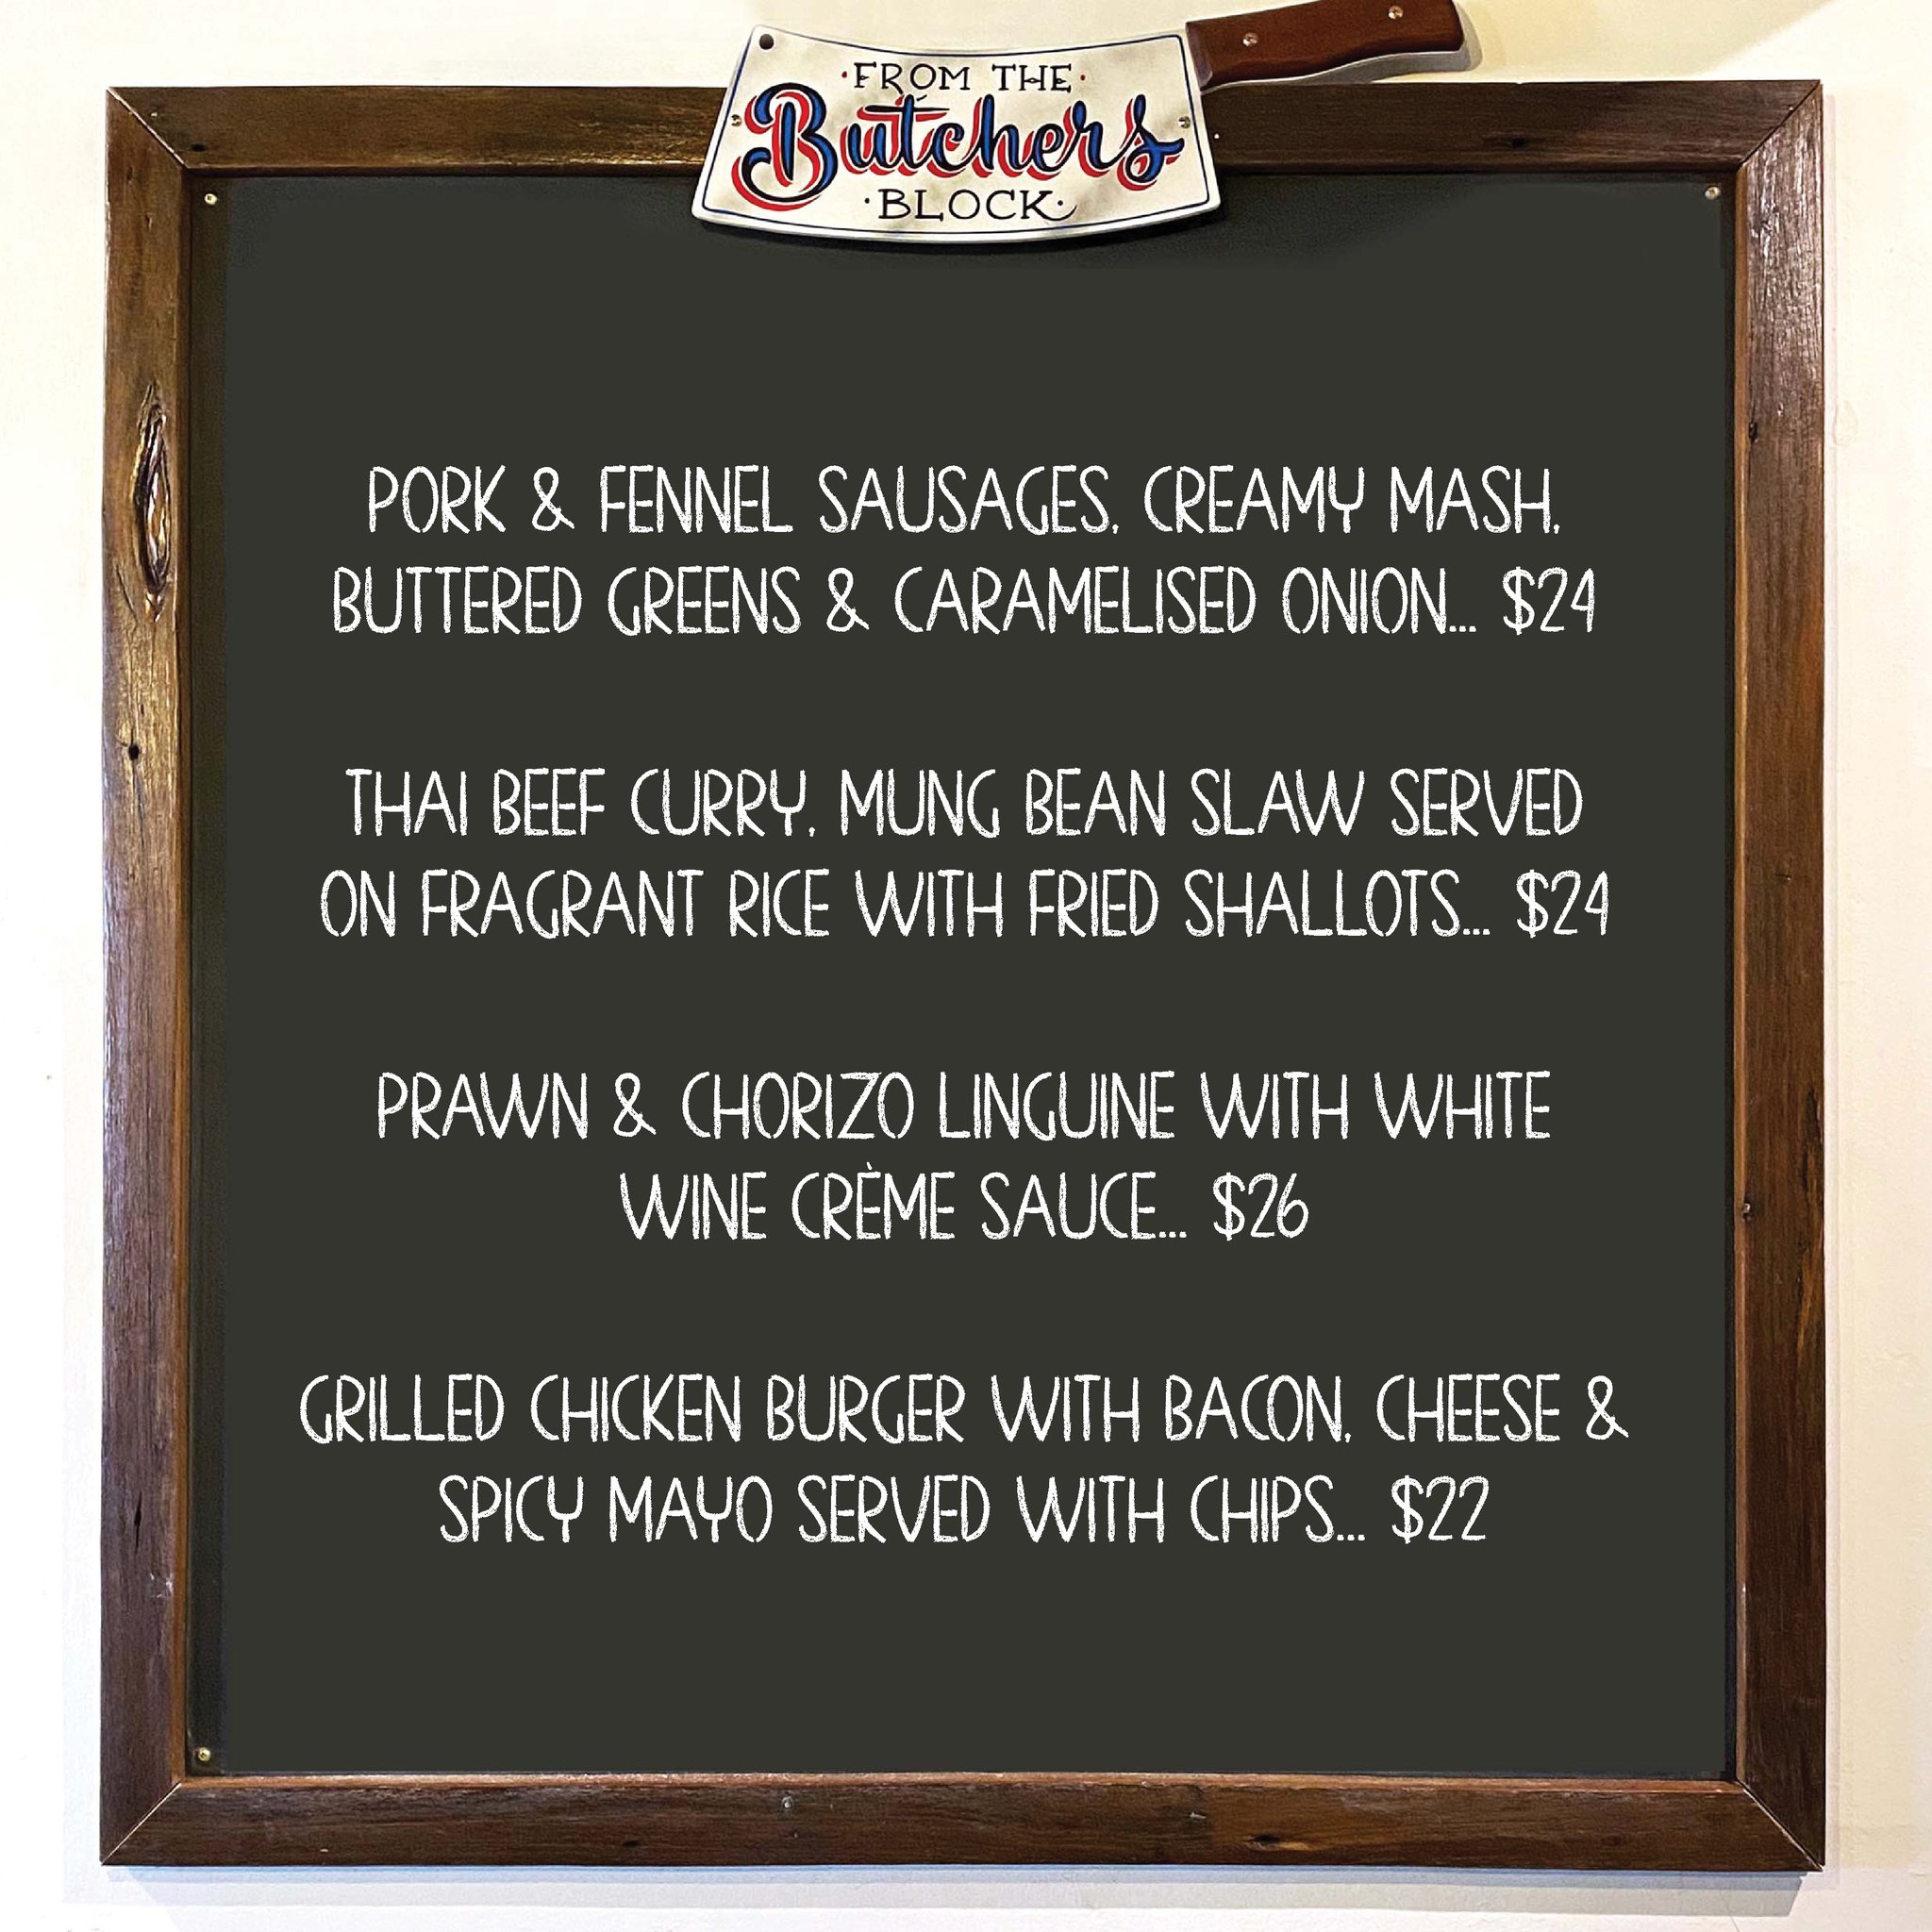 ·FROM THE·
Butchers
·BLOCK·
PORK & FENNEL SAUSAGES, CREAMY MASH,
BUTTERED GREENS & CARAMELISED ONION... $24
THAI BEEF CURRY, MUNG BEAN SLAW SERVED
ON FRAGRANT RICE WITH FRIED SHALLOTS... $24
PRAWN & CHORIZO LINGUINE WITH WHITE
WINE CRÈME SAUCE... $26
GRILLED CHICKEN BURGER WITH BACON, CHEESE &
SPICY MAYO SERVED WITH CHIPS... $22